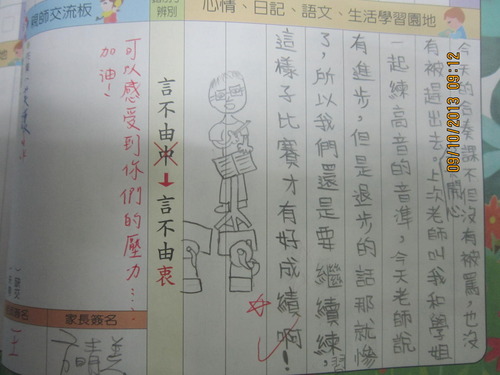 心情、日記、語文、生活學習園地
今天的合奏課不但沒有被罵,也沒
開心
有被趕出去。上次老師叫我和學姐
一起練高音的音準,今天老師說
有進步,但是退步的話那就慘
了,所以我們還是要繼續練習,
這樣子比賽才有好成績啊!
辨別
言不由中
言不由衷
親師交流板
可以感受到你們的壓力……
加油!
家長簽名
09/10/2013 09:12